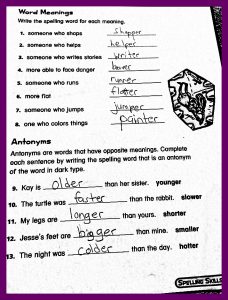 Word Meanings
Write the spelling word for each meaning.
1. someone who shops shopper
2. someone who helps helper
3. someone who writes stories writer
4. more able to face danger
5. someone who runs runner
6. more flat flatter
7. someone who jumps jumper
8. one who colors things painter
Antonyms
Antonyms are words that have opposite meanings. Complete
each sentence by writing the spelling word that is an antonym
of the word in dark type.
9. Kay is older than her sister. younger
10. The turtle was faster than the rabbit. slower
11. My legs are longer than yours. shorter
12. Jesse's feet are bigger than mine. smaller
13. The night was colder than the day. hotter
Spelling Skills